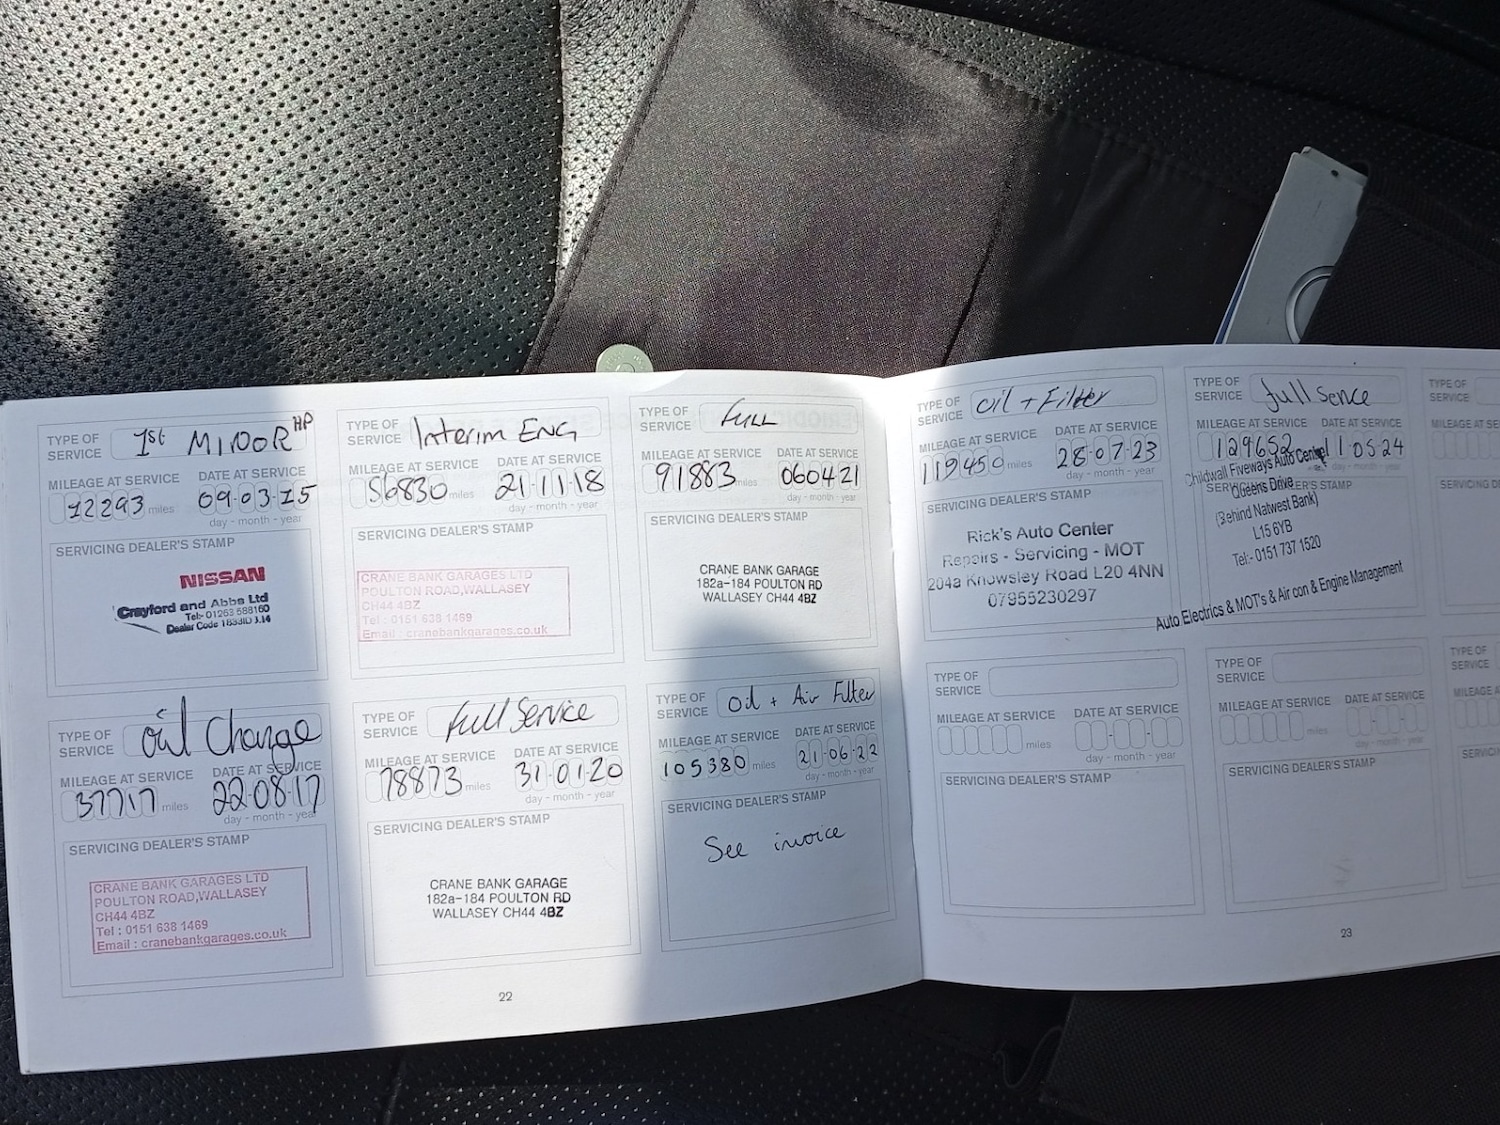 TYPE OF SERVICE 1st MINOR HP
MILEAGE AT SERVICE DATE AT SERVICE
12293 miles 09-03-15
day - month - year
SERVICING DEALER'S STAMP
NISSAN
Crayford and Abbs Ltd
Tel:- 01263 588160
TYPE OF SERVICE Oil Change
MILEAGE AT SERVICE DATE AT SERVICE
37717 miles 22-08-17
day - month - year
SERVICING DEALER'S STAMP
CRANE BANK GARAGES LTD
POULTON ROAD,WALLASEY
CH44 4BZ
Tel : 0151 638 1469
Email : cranebankgarages.co.uk
TYPE OF SERVICE Interim ENG
MILEAGE AT SERVICE DATE AT SERVICE
56830 miles 21-11-18
day - month - year
SERVICING DEALER'S STAMP
CRANE BANK GARAGES LTD
POULTON ROAD,WALLASEY
CH44 4BZ
Tel : 0151 638 1469
Email : cranebankgarages.co.uk
TYPE OF SERVICE Full Service
MILEAGE AT SERVICE DATE AT SERVICE
78873 miles 31-01-20
day - month - year
SERVICING DEALER'S STAMP
CRANE BANK GARAGE
182a-184 POULTON RD
WALLASEY CH44 4BZ
TYPE OF SERVICE FULL
MILEAGE AT SERVICE DATE AT SERVICE
91883 miles 060421
day - month - year
SERVICING DEALER'S STAMP
CRANE BANK GARAGE
182a-184 POULTON RD
WALLASEY CH44 4BZ
TYPE OF SERVICE Oil + Air Filter
MILEAGE AT SERVICE DATE AT SERVICE
105380 miles 21-06-22
day - month - year
SERVICING DEALER'S STAMP
See invoice
22
TYPE OF SERVICE Oil + Filter
MILEAGE AT SERVICE DATE AT SERVICE
119450 miles 28-07-23
day - month - year
SERVICING DEALER'S STAMP
Rick's Auto Center
Repairs - Servicing - MOT
204a Knowsley Road L20 4NN
07955230297
TYPE OF SERVICE full service
MILEAGE AT SERVICE DATE AT SERVICE
129652 11-05-24
day - month - year
SERVICING DEALER'S STAMP
Childwall Fiveways Auto Centre
Queens Drive
(Behind Natwest Bank)
L15 6YB
Tel:- 0151 737 1520
Auto Electrics & MOT's & Air con & Engine Management
TYPE OF SERVICE
MILEAGE AT SERVICE DATE AT SERVICE
miles
day - month - year
SERVICING DEALER'S STAMP
TYPE OF SERVICE
MILEAGE AT SERVICE DATE AT SERVICE
miles
day - month - year
SERVICING DEALER'S STAMP
TYPE OF SERVICE
MILEAGE AT
SERVICING
TYPE OF SERVICE
MILEAGE
23